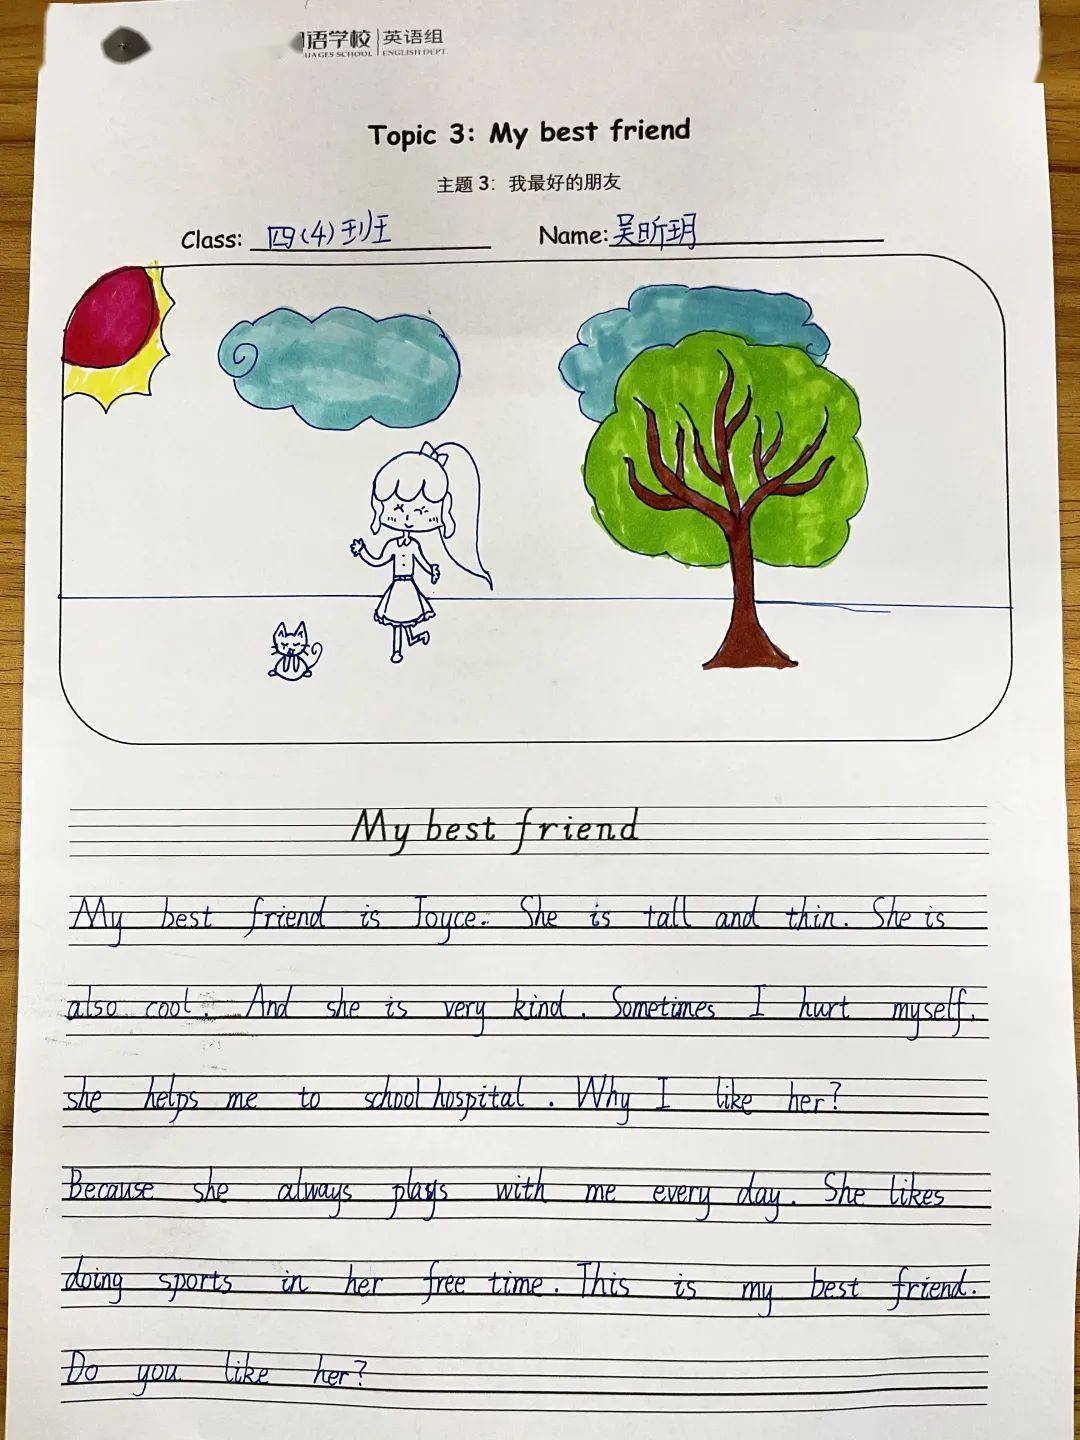 语学校 英语组
UAGES SCHOOL ENGLISH DEPT.
Topic 3: My best friend
主题 3: 我最好的朋友
Class: 四(4)班 Name: 吴昕玥
My best friend
My best friend is Joyce. She is tall and thin. She is
also cool. And she is very kind. Sometimes I hurt myself,
she helps me to school hospital. Why I like her?
Because she always plays with me every day. She likes
doing sports in her free time. This is my best friend.
Do you like her?